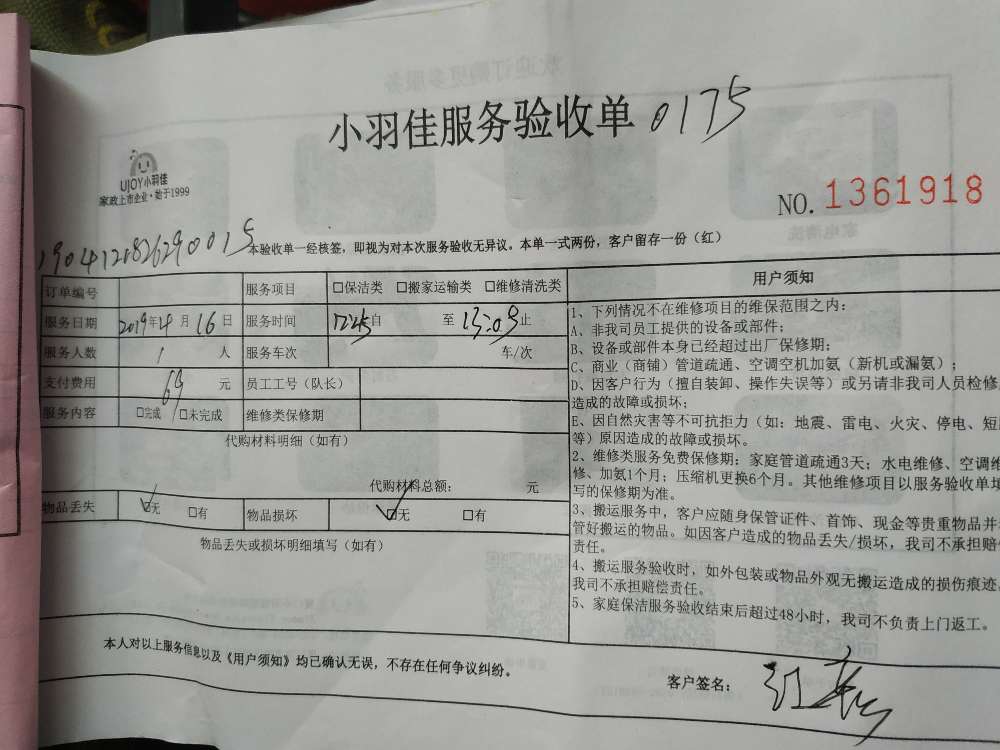 小羽佳服务验收单 0175
UJOY小羽佳
家政上市企业·始于1999
NO. 1361918
190412182629 0015
本验收单一经核签，即视为对本次服务验收无异议。本单一式两份，客户留存一份（红）
订单编号 服务项目 □保洁类 □搬家运输类 □维修清洗类
服务日期 2019年4月16日 服务时间 12:45自 至 13:09止
服务人数 1 人 服务车次 车/次
支付费用 69 元 员工工号（队长）
服务内容 □完成 □未完成 维修类保修期
代购材料明细（如有）
代购材料总额： 元
物品丢失 ☑无 □有 物品损坏 ☑无 □有
物品丢失或损坏明细填写（如有）
用户须知
1、下列情况不在维修项目的维保范围之内：
A、非我司员工提供的设备或部件；
B、设备或部件本身已经超过出厂保修期；
C、商业（商铺）管道疏通、空调空机加氨（新机或漏氨）；
D、因客户行为（擅自装卸、操作失误等）或另请非我司人员检修
造成的故障或损坏；
E、因自然灾害等不可抗拒力（如：地震、雷电、火灾、停电、短
等）原因造成的故障或损坏。
2、维修类服务免费保修期：家庭管道疏通3天；水电维修、空调维
修、加氨1个月；压缩机更换6个月。其他维修项目以服务验收单填
写的保修期为准。
3、搬运服务中，客户应随身保管证件、首饰、现金等贵重物品并
管好搬运的物品。如因客户造成的物品丢失/损坏，我司不承担赔偿
责任。
4、搬运服务验收时，如外包装或物品外观无搬运造成的损伤痕迹，
我司不承担赔偿责任。
5、家庭保洁服务验收结束后超过48小时，我司不负责上门返工。
本人对以上服务信息以及《用户须知》均已确认无误，不存在任何争议纠纷。
客户签名：